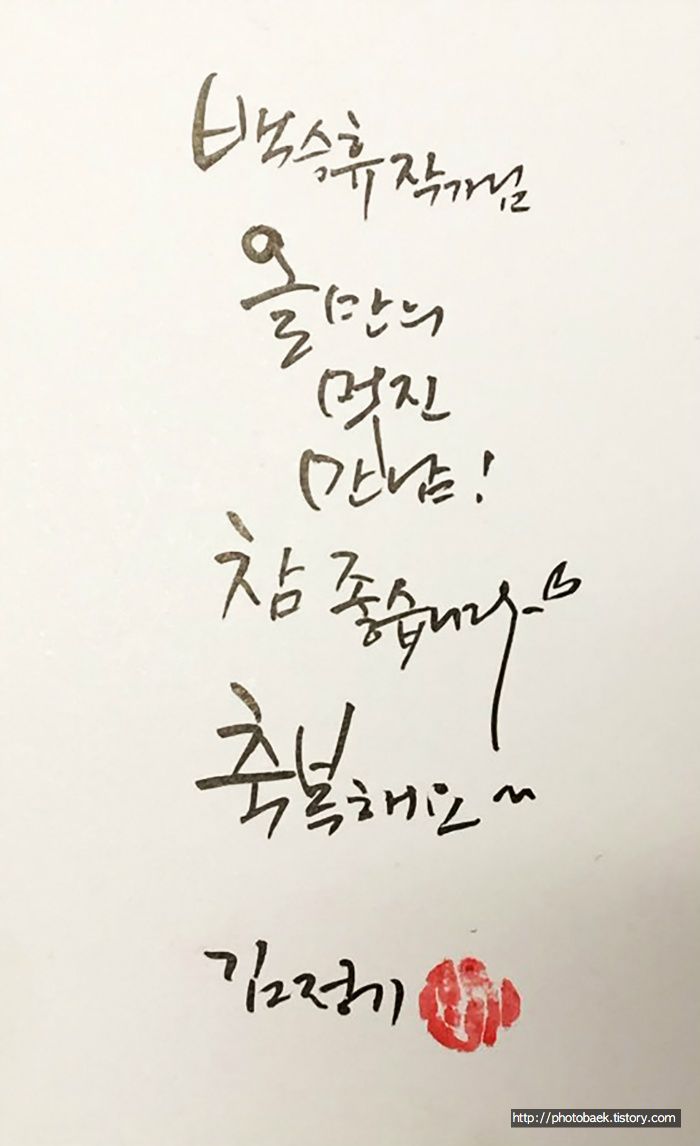 백승휴 작가님
올만의
멋진
만남!
참 좋습니다
축복해요~
김정기
http://photobaek.tistory.com